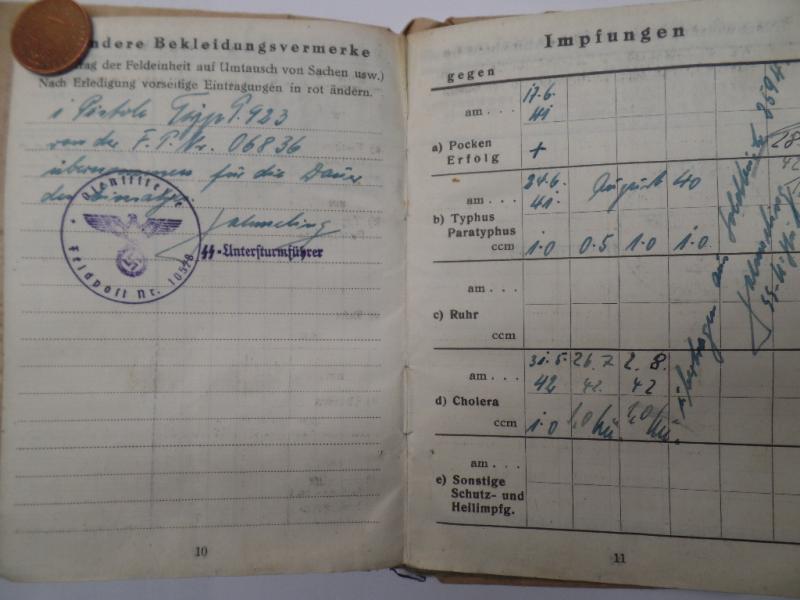 ondere Bekleidungsvermerke
rag der Feldeinheit auf Umtausch von Sachen usw.)
Nach Erledigung vorseitige Eintragungen in rot ändern.
1 Pistole Type P. 923
von der F.P.Nr. 06836
übernommen für die Dauer
des Einsatzes
Dienststelle
Feldpost Nr. 10528
SS-Untersturmführer
10
Impfungen
gegen
am . . . 17.6. 41
a) Pocken
Erfolg +
am . . . 24.6. 41. August 40
b) Typhus
Paratyphus
ccm 1.0 0.5 1.0 1.0
am . . .
c) Ruhr
ccm
am . . . 31.5. 26.7. 2.8.
42 42. 42
d) Cholera
ccm 1.0 1,0 1,0
am . . .
e) Sonstige
Schutz- und
Heilimpfg.
übertragen aus Soldbuch
11